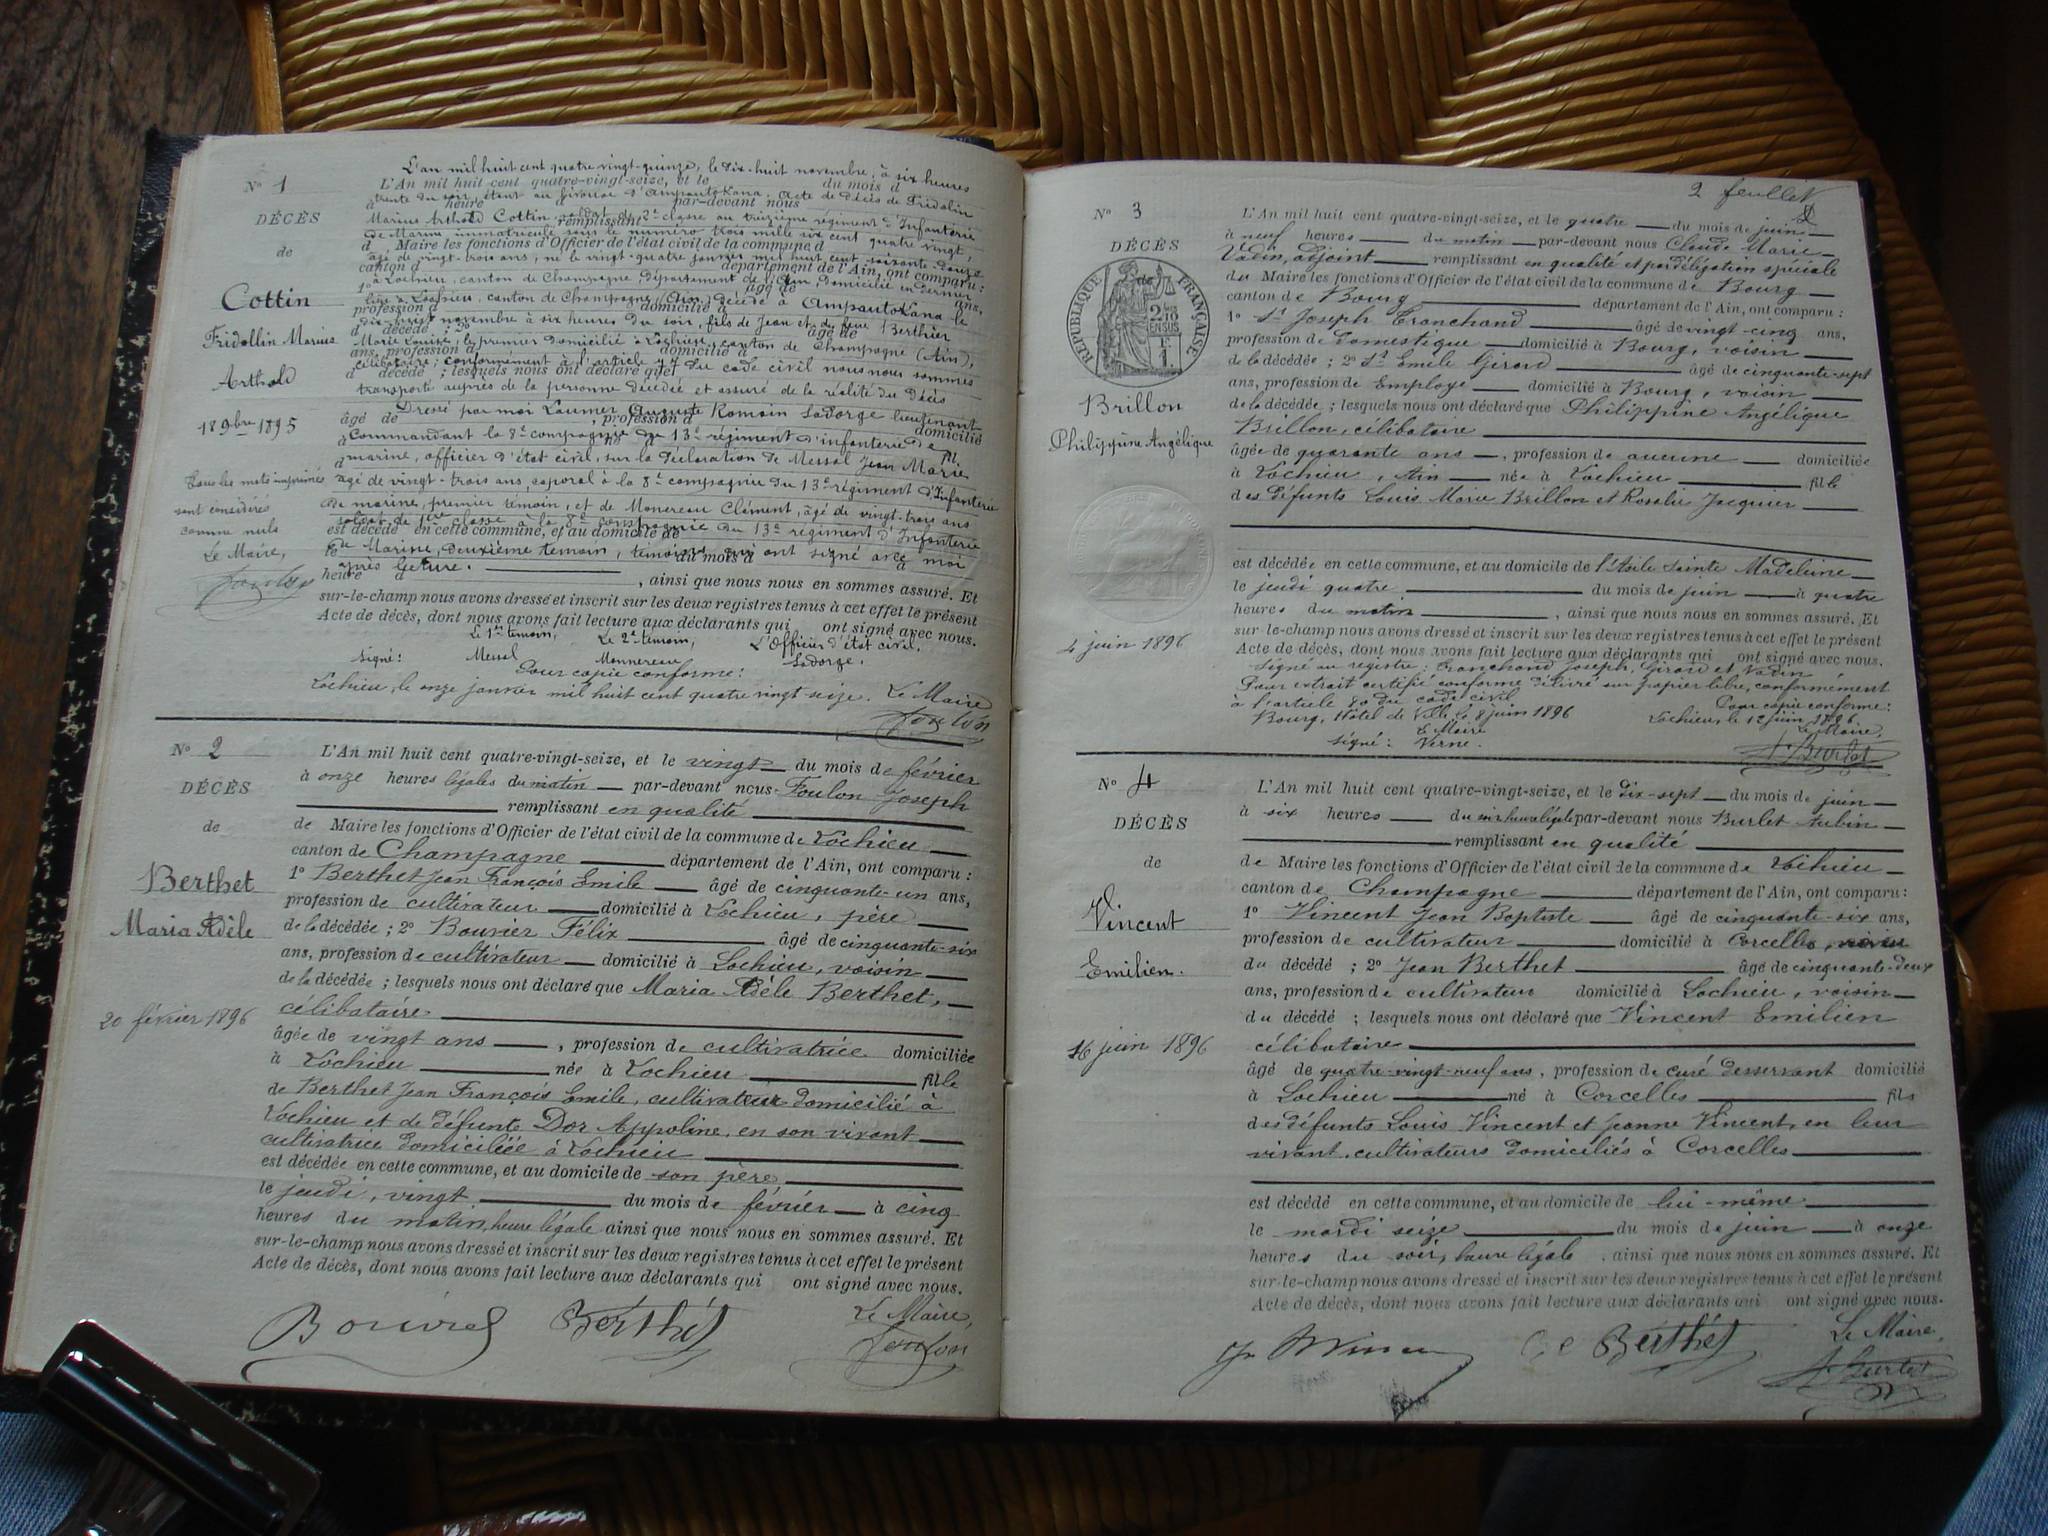 N° 1
DÉCÈS
de
Cottin
Fridollin Marius
Arthold
18 9bre 1895
Tous les mots imprimés
sont considérés
comme nuls
Le Maire,
Foulon
L'an mil huit cent quatre vingt-quinze, le dix-huit novembre, à six heures
L'An mil huit cent quatre-vingt-seize, et le du mois d
trente du soir, étant au bivouac d'Ampautokana. Acte de décès de Fridolin
à heure par-devant nous
Marius Arthold Cottin soldat de 2e classe au treizième régiment d'Infanterie
remplissant
de Marine immatriculé sous le numéro trois mille six cent quatre vingt,
d Maire les fonctions d'Officier de l'état civil de la commune d
âgé de vingt-trois ans, né le vingt-quatre janvier mil huit cent soixante-douze
canton d département de l'Ain, ont comparu :
à Lochieu, canton de Champagne, Département de l'Ain domicilié en dernier
1° âgé de ans,
lieu à Lochieu, canton de Champagne (Ain), décédé à Ampautokana le
profession d domicilié à
dix-huit novembre à six heures du soir, fils de Jean et de feue Berthier
d décédé ; 2° âgé de
Marie Louise, le premier domicilié à Lochieu, canton de Champagne (Ain),
ans, profession d domicilié à
célibataire ; conformément à l'article 77 du code civil nous nous sommes
d décédé ; lesquels nous ont déclaré que
transporté auprès de la personne décédée et assuré de la réalité du décès
Dressé par moi Laumer Auguste Romain Ladorge lieutenant
âgé de , profession d domicilié
Commandant la 8e compagnie du 13e régiment d'infanterie de
à fil
marine, officier d'état civil, sur la déclaration de Messal Jean Marie
d
âgé de vingt-trois ans, caporal à la 8e compagnie du 13e régiment d'Infanterie
de marine, premier témoin, et de Monereau Clément, âgé de vingt-trois ans
soldat de 1ère classe à la 8e compagnie du 13e régiment d'Infanterie
est décédé en cette commune, et au domicile de
de Marine, deuxième témoin, témoins qui ont signé avec moi
le du mois d à
après lecture.
heure d , ainsi que nous nous en sommes assuré. Et
sur-le-champ nous avons dressé et inscrit sur les deux registres tenus à cet effet le présent
Acte de décès, dont nous avons fait lecture aux déclarants qui ont signé avec nous.
Le 1er témoin, Le 2e témoin, L'Officier d'état civil,
Signé : Messal Monnereau Ladorge.
Pour copie conforme :
Lochieu, le onze janvier mil huit cent quatre vingt seize. Le Maire
Foulon
N° 2
DÉCÈS
de
Berthet
Maria Adèle
20 février 1896
L'An mil huit cent quatre-vingt-seize, et le vingt du mois de février
à onze heures légales du matin par-devant nous Foulon Joseph
remplissant en qualité
de Maire les fonctions d'Officier de l'état civil de la commune de Lochieu
canton de Champagne département de l'Ain, ont comparu :
1° Berthet Jean François Emile âgé de cinquante-un ans,
profession de cultivateur domicilié à Lochieu, père
de la décédée ; 2° Bouvier Félix âgé de cinquante-six
ans, profession de cultivateur domicilié à Lochieu, voisin
de la décédée ; lesquels nous ont déclaré que Maria Adèle Berthet,
célibataire
âgée de vingt ans , profession de cultivatrice domiciliée
à Lochieu née à Lochieu fille
de Berthet Jean François Emile, cultivateur domicilié à
Lochieu et de défunte Dor Appoline, en son vivant
cultivatrice domiciliée à Lochieu
est décédée en cette commune, et au domicile de son père
le jeudi, vingt du mois de février à cinq
heures du matin, heure légale ainsi que nous nous en sommes assuré. Et
sur-le-champ nous avons dressé et inscrit sur les deux registres tenus à cet effet le présent
Acte de décès, dont nous avons fait lecture aux déclarants qui ont signé avec nous.
Bouvier Berthet Le Maire,
Foulon
2 feuillet
N° 3
DÉCÈS
RÉPUBLIQUE FRANÇAISE
Brillon
Philippine Angélique
4 juin 1896
L'An mil huit cent quatre-vingt-seize, et le quatre du mois de juin
à neuf heures du matin par-devant nous Claude Marie
Vadin, adjoint remplissant en qualité et par délégation spéciale
du Maire les fonctions d'Officier de l'état civil de la commune de Bourg
canton de Bourg département de l'Ain, ont comparu :
1° Sr Joseph Tranchand âgé de vingt-cinq ans,
profession de domestique domicilié à Bourg, voisin
de la décédée ; 2° Sr Emile Girard âgé de cinquante-sept
ans, profession de Employé domicilié à Bourg, voisin
de la décédée ; lesquels nous ont déclaré que Philippine Angélique
Brillon, célibataire
âgée de quarante ans , profession de aucune domiciliée
à Lochieu, Ain née à Lochieu fille
des défunts Louis Marie Brillon et Rosalie Jacquier
est décédée en cette commune, et au domicile de l'Asile Sainte Madeleine
le jeudi quatre du mois de juin à quatre
heures du matin , ainsi que nous nous en sommes assuré. Et
sur-le-champ nous avons dressé et inscrit sur les deux registres tenus à cet effet le présent
Acte de décès, dont nous avons fait lecture aux déclarants qui ont signé avec nous.
Signé au registre : Tranchand Joseph, Girard et Vadin
Pour extrait certifié conforme délivré sur papier libre, conformément
à l'article 80 du code civil Pour copie conforme :
Bourg, Hôtel de Ville le 8 juin 1896 Lochieu, le 12 juin 1896.
Le Maire Le Maire,
signé : Verne. A. Burlet
N° 4
DÉCÈS
de
Vincent
Emilien.
16 juin 1896
L'An mil huit cent quatre-vingt-seize, et le dix-sept du mois de juin
à six heures du soir heure légale par-devant nous Burlet Aubin
remplissant en qualité
de Maire les fonctions d'Officier de l'état civil de la commune de Lochieu
canton de Champagne département de l'Ain, ont comparu :
1° Vincent Jean Baptiste âgé de cinquante-six ans,
profession de cultivateur domicilié à Corcelles,
du décédé ; 2° Jean Berthet âgé de cinquante-deux
ans, profession de cultivateur domicilié à Lochieu, voisin
du décédé ; lesquels nous ont déclaré que Vincent Emilien
célibataire
âgé de quatre-vingt-neuf ans, profession de curé desservant domicilié
à Lochieu né à Corcelles fils
des défunts Louis Vincent et Jeanne Vincent, en leur
vivant cultivateurs domiciliés à Corcelles
est décédé en cette commune, et au domicile de lui-même
le mardi seize du mois de juin à onze
heures du soir, heure légale , ainsi que nous nous en sommes assuré. Et
sur-le-champ nous avons dressé et inscrit sur les deux registres tenus à cet effet le présent
Acte de décès, dont nous avons fait lecture aux déclarants qui ont signé avec nous.
Berthet Le Maire,
A. Burlet